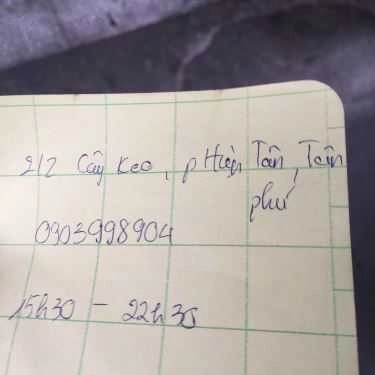 212 Cây Keo, p Hiệp Tân, Tân
phú
0903998904
15h30 - 22h30